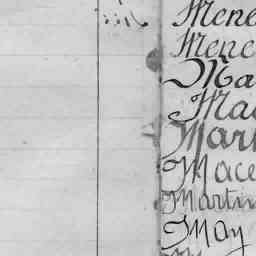 Mene
Menc
Ma
Mac
Mar
Mace
Martin
May